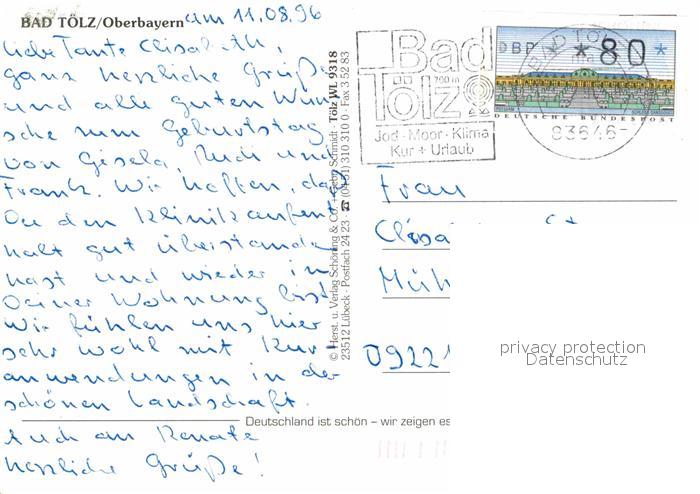 BAD TÖLZ/Oberbayern am 11.08.96
Liebe Tante Elisabeth,
ganz herzliche Grüße
und alle guten Wün-
sche zum Geburtstag
von Gisela, Rudi und
Frank. Wir hoffen, daß
Du den Klinikaufent-
halt gut überstanden
hast und wieder in
Deiner Wohnung bist.
Wir fühlen uns hier
sehr wohl mit Kur-
anwendungen in der
schönen Landschaft.
Auch an Renate
herzliche Grüße!
© Herst. u. Verlag Schöning & Co. + Gebr. Schmidt · Tölz WL 9318
23512 Lübeck · Postfach 24 23 · ☎ (04 51) 310 310 0 · Fax 3 52 83
Bad
Tölz
700 m
Jod · Moor · Klima
Kur + Urlaub
BAD TÖLZ
83646
DBP * *80*
DEUTSCHE BUNDESPOST
Frau
Elisa
Müh
09221
privacy protection
Datenschutz
Deutschland ist schön – wir zeigen es